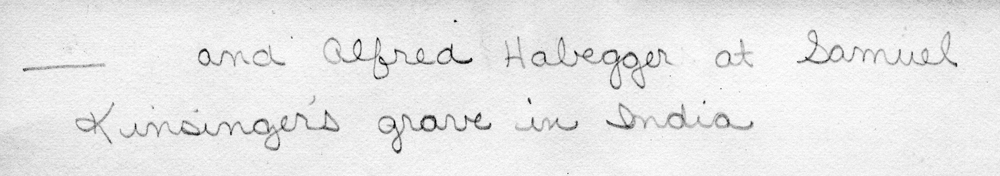 ____ and Alfred Habegger at Samuel
Kinsinger's grave in India